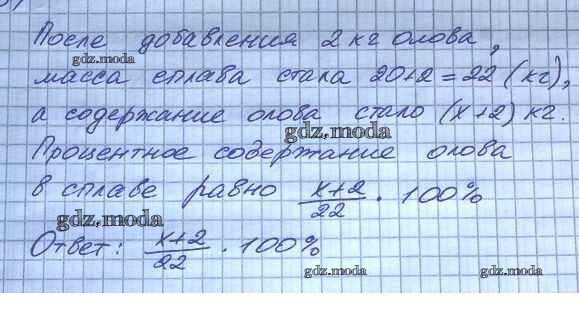 После добавления 2 кг олова,
gdz.moda
масса сплава стала 20+2=22 (кг),
а содержание олова стало (x+2) кг.
gdz.moda
Процентное содержание олова
в сплаве равно x+2/22 · 100%
gdz.moda
Ответ: x+2/22 · 100%
gdz.moda gdz.moda